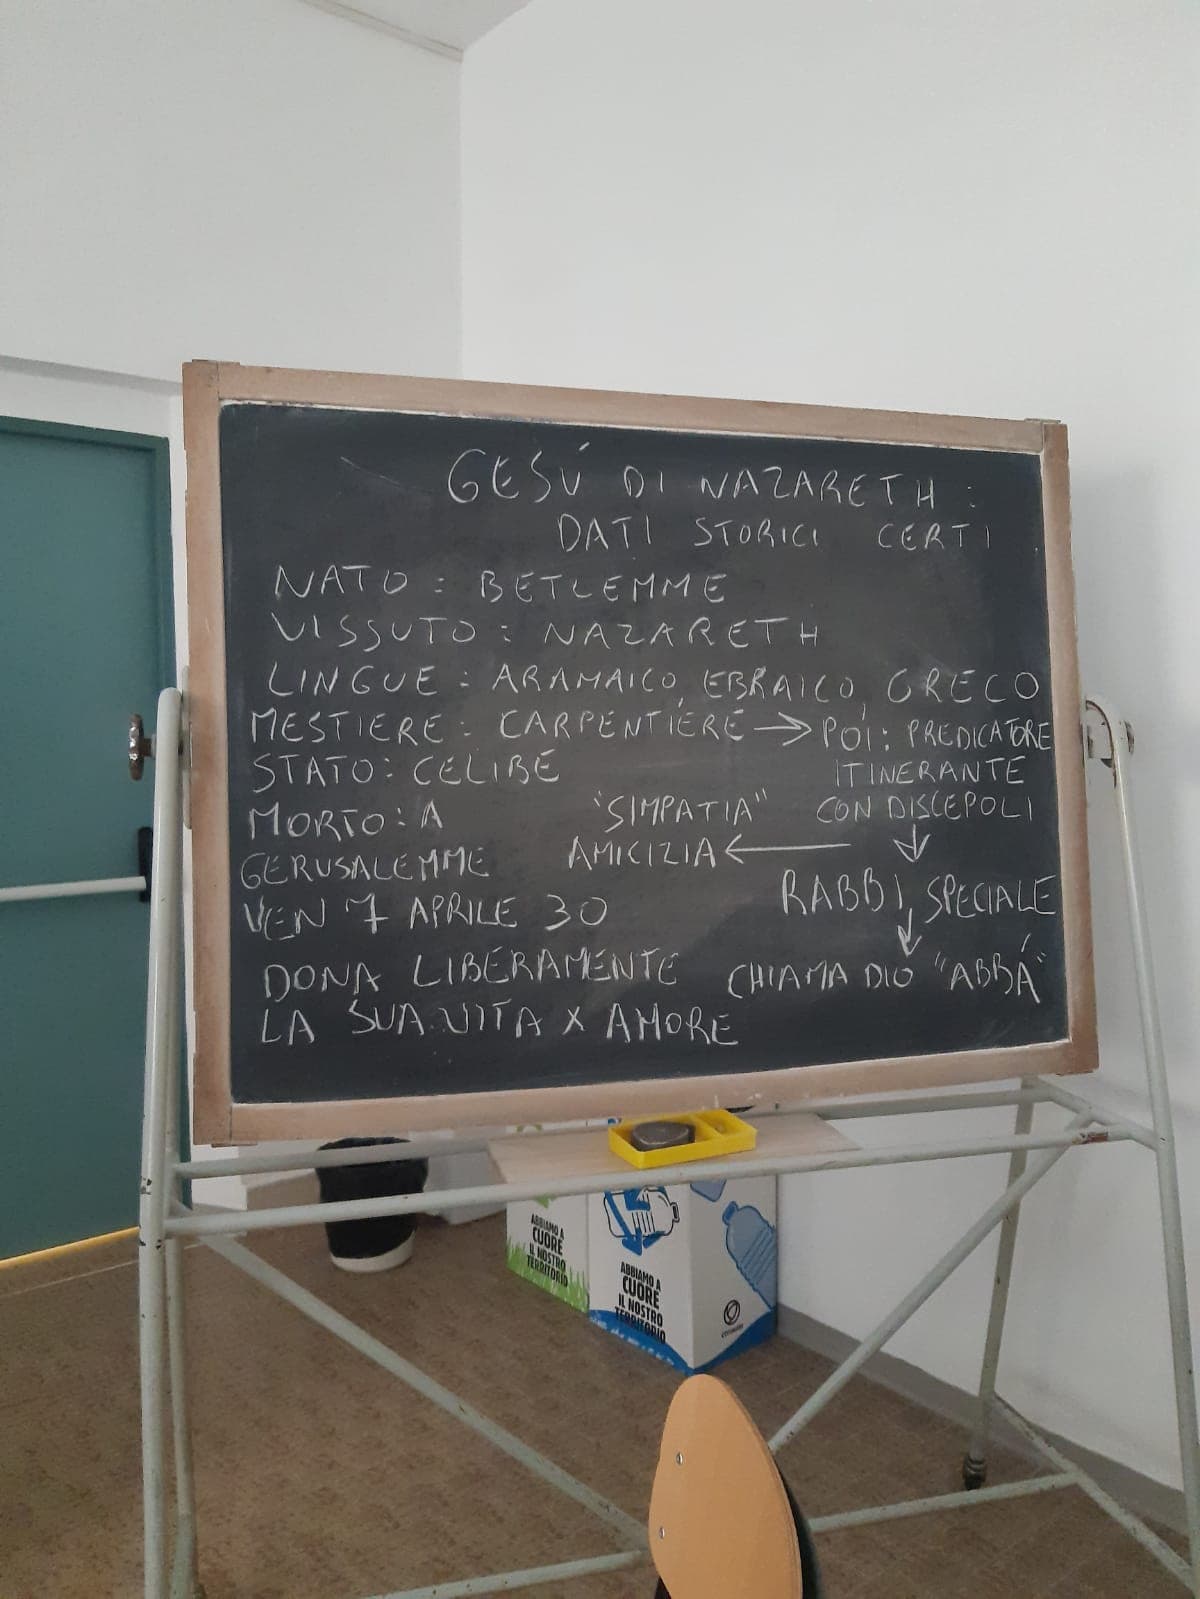 GESÚ DI NAZARETH :
DATI STORICI CERTI
NATO : BETLEMME
VISSUTO : NAZARETH
LINGUE : ARAMAICO, EBRAICO, GRECO
MESTIERE : CARPENTIERE → POI : PREDICATORE
ITINERANTE
CON DISCEPOLI
STATO : CELIBE
MORTO : A
GERUSALEMME
VEN 7 APRILE 30
"SIMPATIA"
AMICIZIA ←
↓
RABBI SPECIALE
↓
CHIAMA DIO "ABBÁ"
DONA LIBERAMENTE
LA SUA VITA X AMORE
ABBIAMO A
CUORE
IL NOSTRO
TERRITORIO
ABBIAMO A
CUORE
IL NOSTRO
TERRITORIO